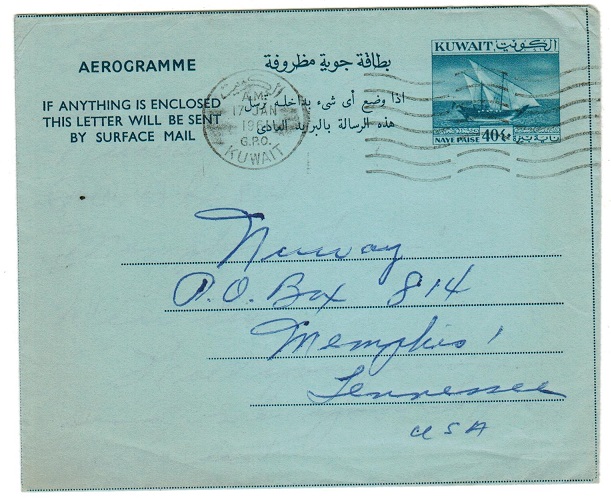 AEROGRAMME
بطاقة جوية مظروفة
KUWAIT الكويت
IF ANYTHING IS ENCLOSED
THIS LETTER WILL BE SENT
BY SURFACE MAIL
اذا وضع أى شىء بداخله ترسل
هذه الرسالة بالبريد العادى
NAYE PAISE 40 ٤٠ نايه بيزه
الكويت
AM
17 JAN
G.P.O.
KUWAIT
Nuway
P.O. Box 814
Memphis
Tennessee
USA